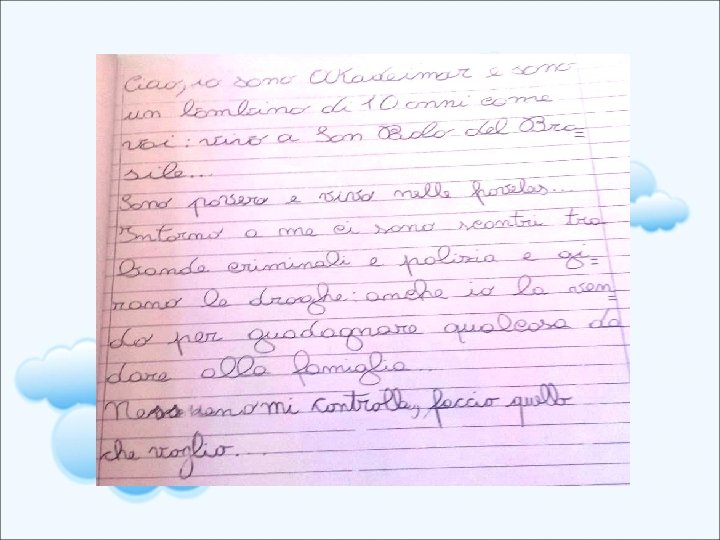 Ciao, io sono Akadeimar e sono
un bambino di 10 anni come
voi: vivo a San Paolo del Bra=
sile...
Sono povero e vivo nelle favelas...
Intorno a me ci sono scontri tra
bande criminali e polizia e gi=
rano le droghe: anche io la ven=
do per guadagnare qualcosa da
dare alla famiglia...
Nessuno mi controlla, faccio quello
che voglio....